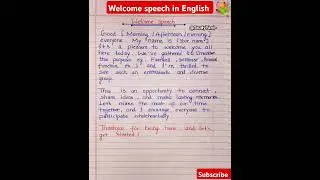 Welcome speech in English
Welcome speech
Good [Morning/Afternoon/evening]
everyone. My name is [Your name]
It's a pleasure to welcome you all
here today. We've gathered to [mention
the purpose eg. Farewell, seminar, Annual
function etc.] and I'm thrilled to
see such an enthusiastic and diverse
group.
This is an opportunity to connect,
share ideas, and make lasting memories.
Let's make the most of our time
together, and I encourage everyone to
participate wholeheartedly.
Thankyou for being here, and let's
get started!
Subscribe